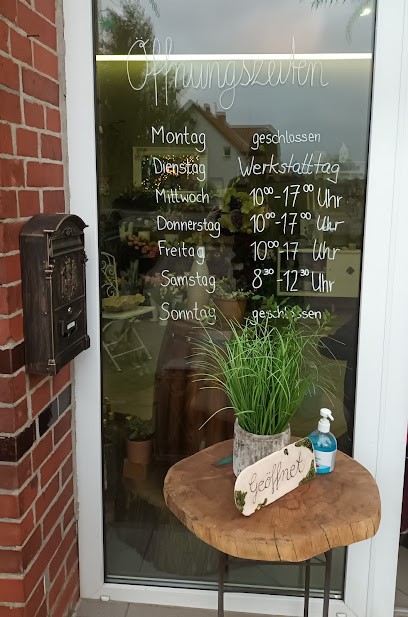 Öffnungszeiten
Montag geschlossen
Dienstag Werkstatttag
Mittwoch 10⁰⁰-17⁰⁰ Uhr
Donnerstag 10⁰⁰-17⁰⁰ Uhr
Freitag 10⁰⁰-17 Uhr
Samstag 8³⁰-12³⁰ Uhr
Sonntag geschlossen
Geöffnet